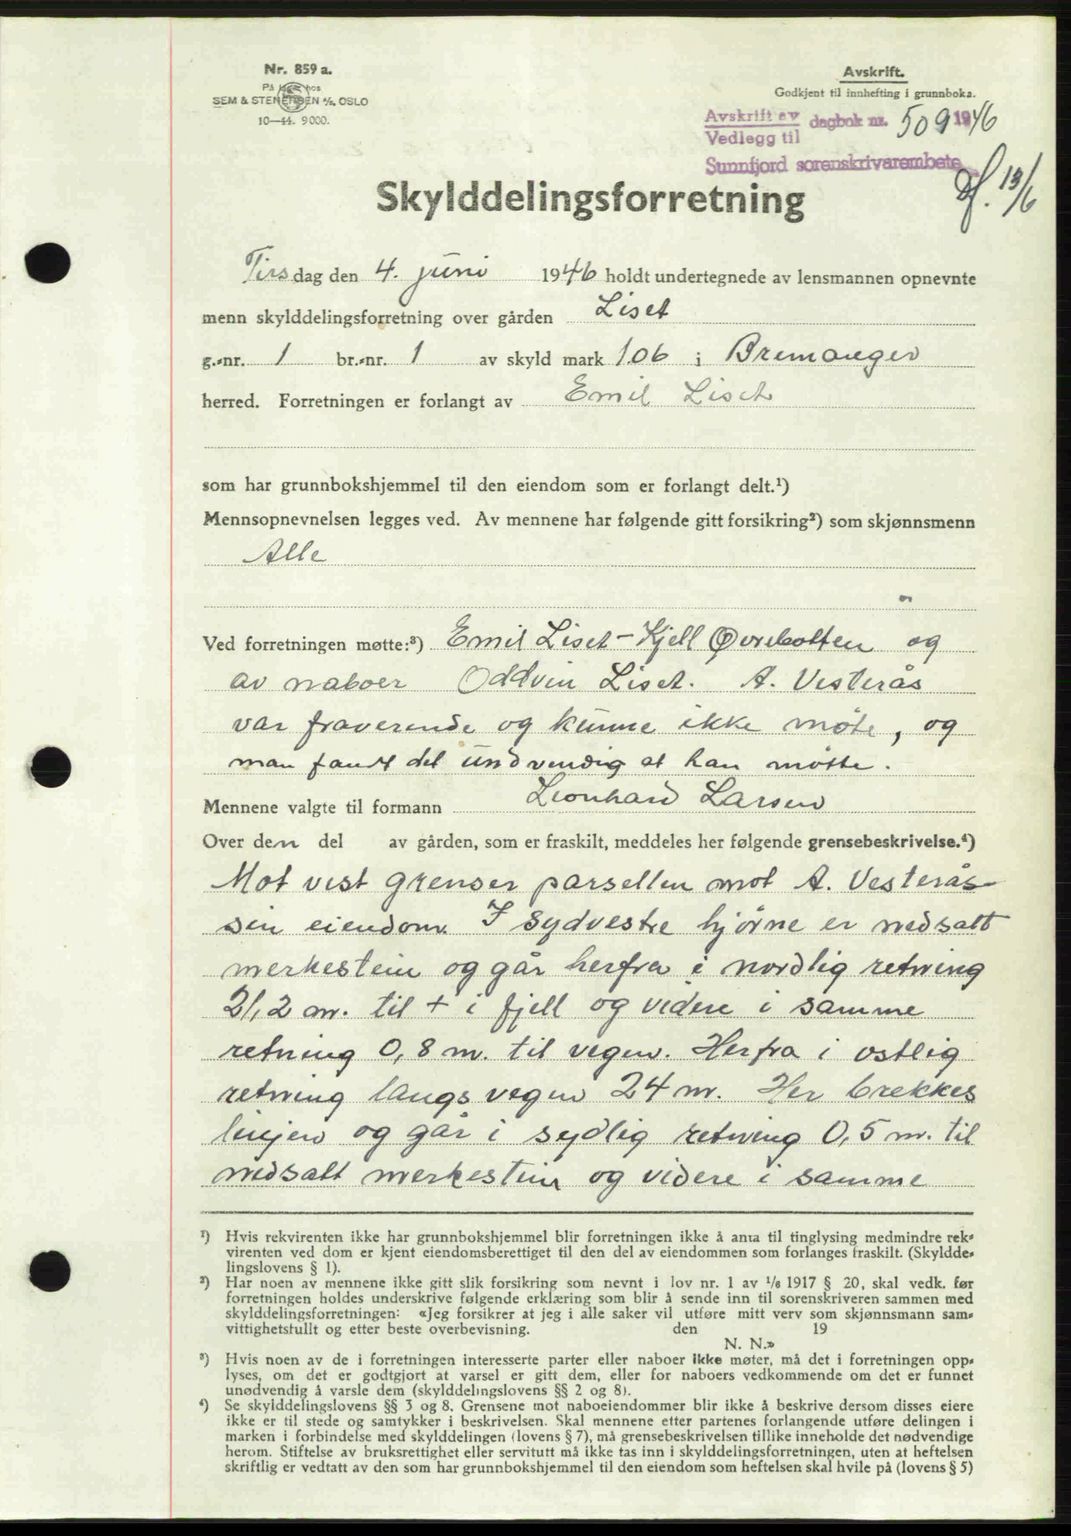 Nr. 859 a.
På lager hos
SEM & STENERSEN A/S, OSLO
10-44. 9000.
Avskrift.
Godkjent til innhefting i grunnboka.
Avskrift av
Vedlegg til dagbok nr. 509 1946
Sunnfjord sorenskrivarembete
Skylddelingsforretning
13/6
Tirsdag den 4. juni 1946 holdt undertegnede av lensmannen opnevnte
menn skylddelingsforretning over gården Liset
g.-nr. 1 br.-nr. 1 av skyld mark 1.06 i Bremanger
herred. Forretningen er forlangt av Emil Liset
som har grunnbokshjemmel til den eiendom som er forlangt delt.¹)
Mennsopnevnelsen legges ved. Av mennene har følgende gitt forsikring²) som skjønnsmenn
Alle
Ved forretningen møtte:³) Emil Liset - Kjell Øvrebotten og
av naboer Oddvin Liset. A. Vesterås
var fraverende og kunne ikke møte, og
man fandt det undvendig at han møtte.
Mennene valgte til formann Leonhard Larsen
Over den del av gården, som er fraskilt, meddeles her følgende grensebeskrivelse.⁴)
Mot vest grenser parsellen mot A. Vesterås
sin eiendom. I sydvestre hjørne er nedsatt
merkestein og går herfra i nordlig retning
21,2 m. til + i fjell og videre i samme
retning 0,8 m. til vegen. Herfra i østlig
retning langs vegen 24 m. Her brekkes
linjen og går i sydlig retning 0,5 m. til
nedsatt merkestein og videre i samme
¹) Hvis rekvirenten ikke har grunnbokshjemmel blir forretningen ikke å anta til tinglysing medmindre rek-
virenten ved dom er kjent eiendomsberettiget til den del av eiendommen som forlanges fraskilt. (Skyldde-
lingslovens § 1).
²) Har noen av mennene ikke gitt slik forsikring som nevnt i lov nr. 1 av 1/6 1917 § 20, skal vedk. før
forretningen holdes underskrive følgende erklæring som blir å sende inn til sorenskriveren sammen med
skylddelingsforretningen: «Jeg forsikrer at jeg i alle saker vil utføre mitt verv som skjønnsmann sam-
vittighetsfullt og etter beste overbevisning. den 19
N. N.»
³) Hvis noen av de i forretningen interesserte parter eller naboer ikke møter, må det i forretningen opp-
lyses, om det er godtgjort at varsel er gitt dem, eller for naboers vedkommende om det er funnet
unødvendig å varsle dem (skylddelingslovens §§ 2 og 8).
⁴) Se skylddelingslovens §§ 3 og 8. Grensene mot naboeiendommer blir ikke å beskrive dersom disses eiere
ikke er til stede og samtykker i beskrivelsen. Skal mennene etter partenes forlangende utføre delingen i
marken i forbindelse med skylddelingen (lovens § 7), må grensebeskrivelsen tillike inneholde det nødvendige
herom. Stiftelse av bruksrettighet eller servitutt må ikke tas inn i skylddelingsforretningen, uten at heftelsen
skriftlig er vedtatt av den som har grunnbokshjemmel til den eiendom som heftelsen skal hvile på (lovens § 5)